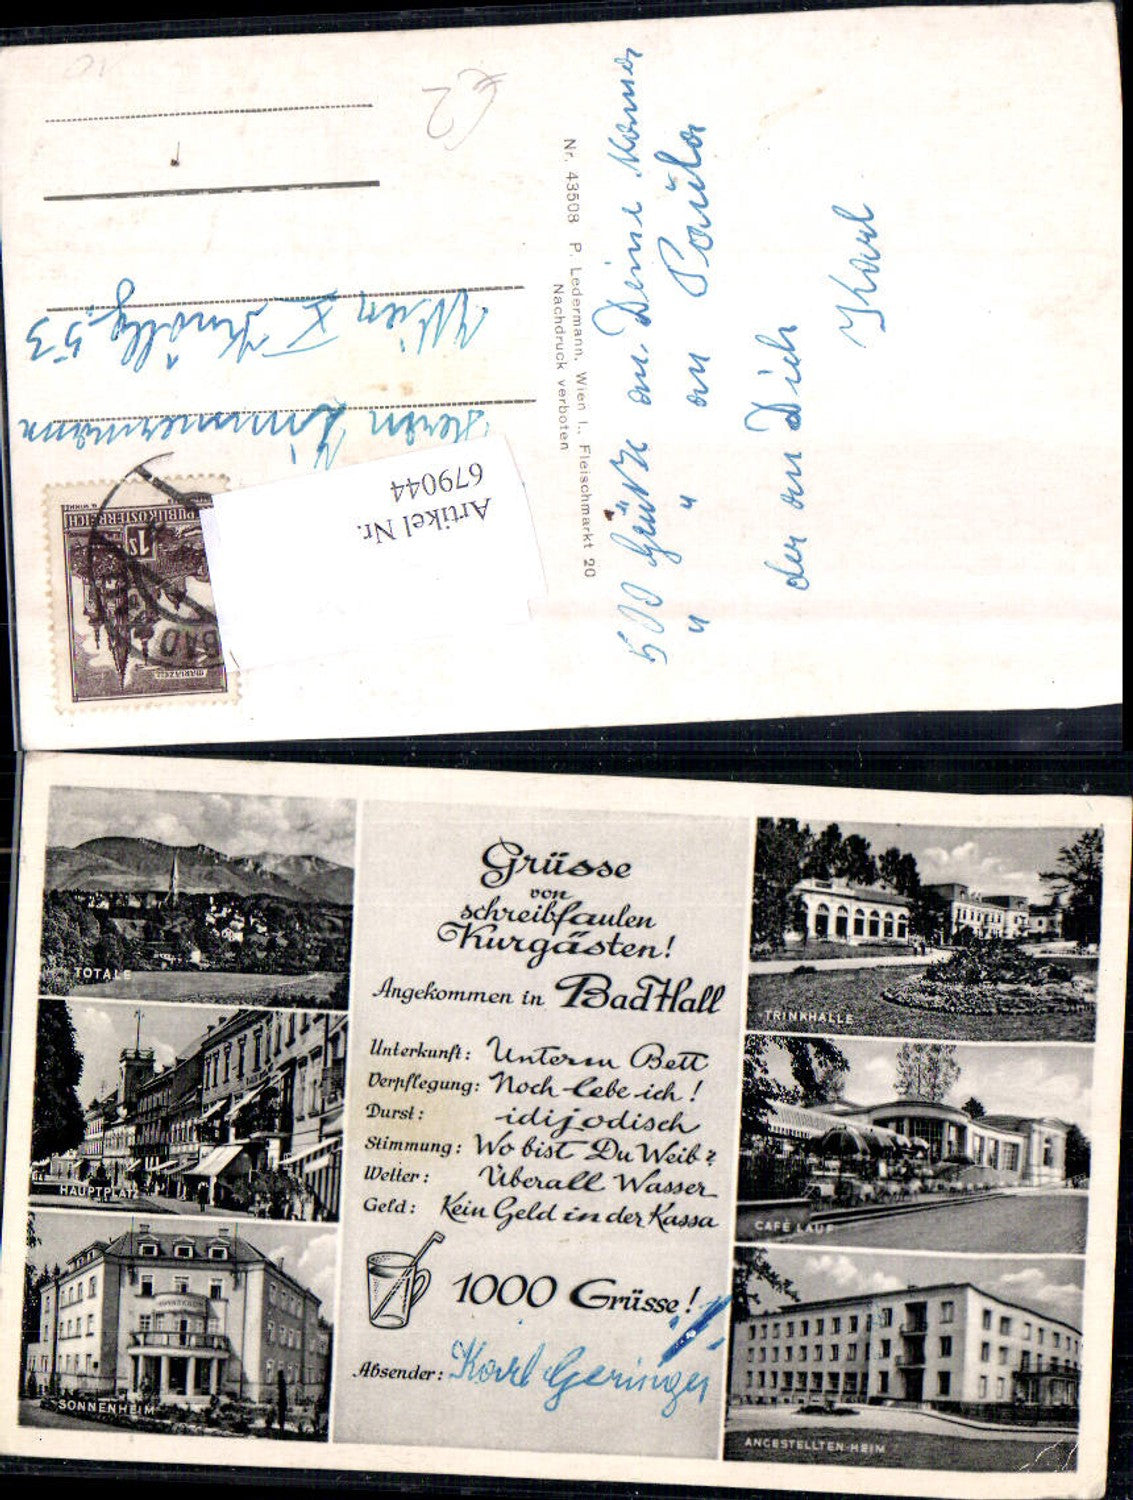 €2
Nr. 43508 P. Ledermann, Wien I., Fleischmarkt 20
Nachdruck verboten
500 an Deine
" " an Paula
der an Dich
Karl
Artikel Nr.
679044
REPUBLIK ÖSTERREICH
1S
MARIAZELL
BAD
Zimmermann
Wien X 53
TOTALE
HAUPTPLATZ
SONNENHEIM
Grüsse
von
schreibfaulen
Kurgästen!
Angekommen in Bad Hall
Unterkunft: Unterm Bett
Verpflegung: Noch lebe ich!
Durst: idijodisch
Stimmung: Wo bist Du Weib?
Wetter: Überall Wasser
Geld: Kein Geld in der Kassa
1000 Grüsse!
Absender: Karl Geringer
TRINKHALLE
CAFÉ LAUF
ANGESTELLTEN-HEIM